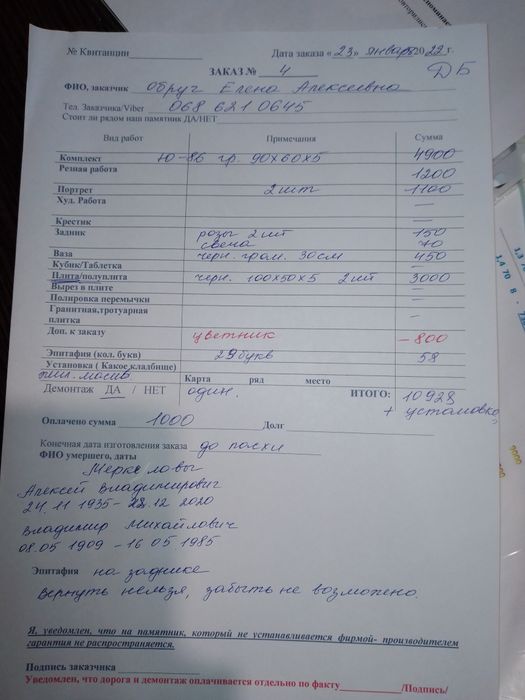 № Квитанции
Дата заказа « 23 » января 2022 г.
ЗАКАЗ № 4
ДБ
ФИО, заказчик Обруг Елена Алексеевна
Тел. Заказчика/Viber 068 621 0645
Стоит ли рядом наш памятник ДА/НЕТ
Вид работ Примечания Сумма
Комплект Ю-86 гр. 90х60х5 4900
Резная работа 1200
Портрет 2шт 1100
Худ. Работа —
Крестик —
Задник розы 2 шт 150
свеча 70
Ваза черн. гран. 30см 450
Кубик/Таблетка —
Плита/полуплита черн. 100х50х5 2 шт 3000
Вырез в плите —
Полировка перемычки —
Гранитная,тротуарная
плитка —
Доп. к заказу цветник — 800
Эпитафия (кол. букв) 29букв 58
Установка ( Какое,кладбище)
жил. масив Карта ряд место
Демонтаж ДА / НЕТ один. ИТОГО: 10928
+ установка
Оплачено сумма 1000 Долг
Конечная дата изготовления заказа до пасхи
ФИО умершего, даты
Меркеловы
Алексей Владимирович
24.11 1935- .12 2020
Владимир Михайлович
08.05 1909 - 16 05 1985
Эпитафия на заднике
Вернуть нельзя, забыть не возможно.
Я, уведомлен, что на памятник, который не устанавливается фирмой- производителем
гарантия не распространяется.
Подпись заказчика
Уведомлен, что дорога и демонтаж оплачивается отдельно по факту /Подпись/